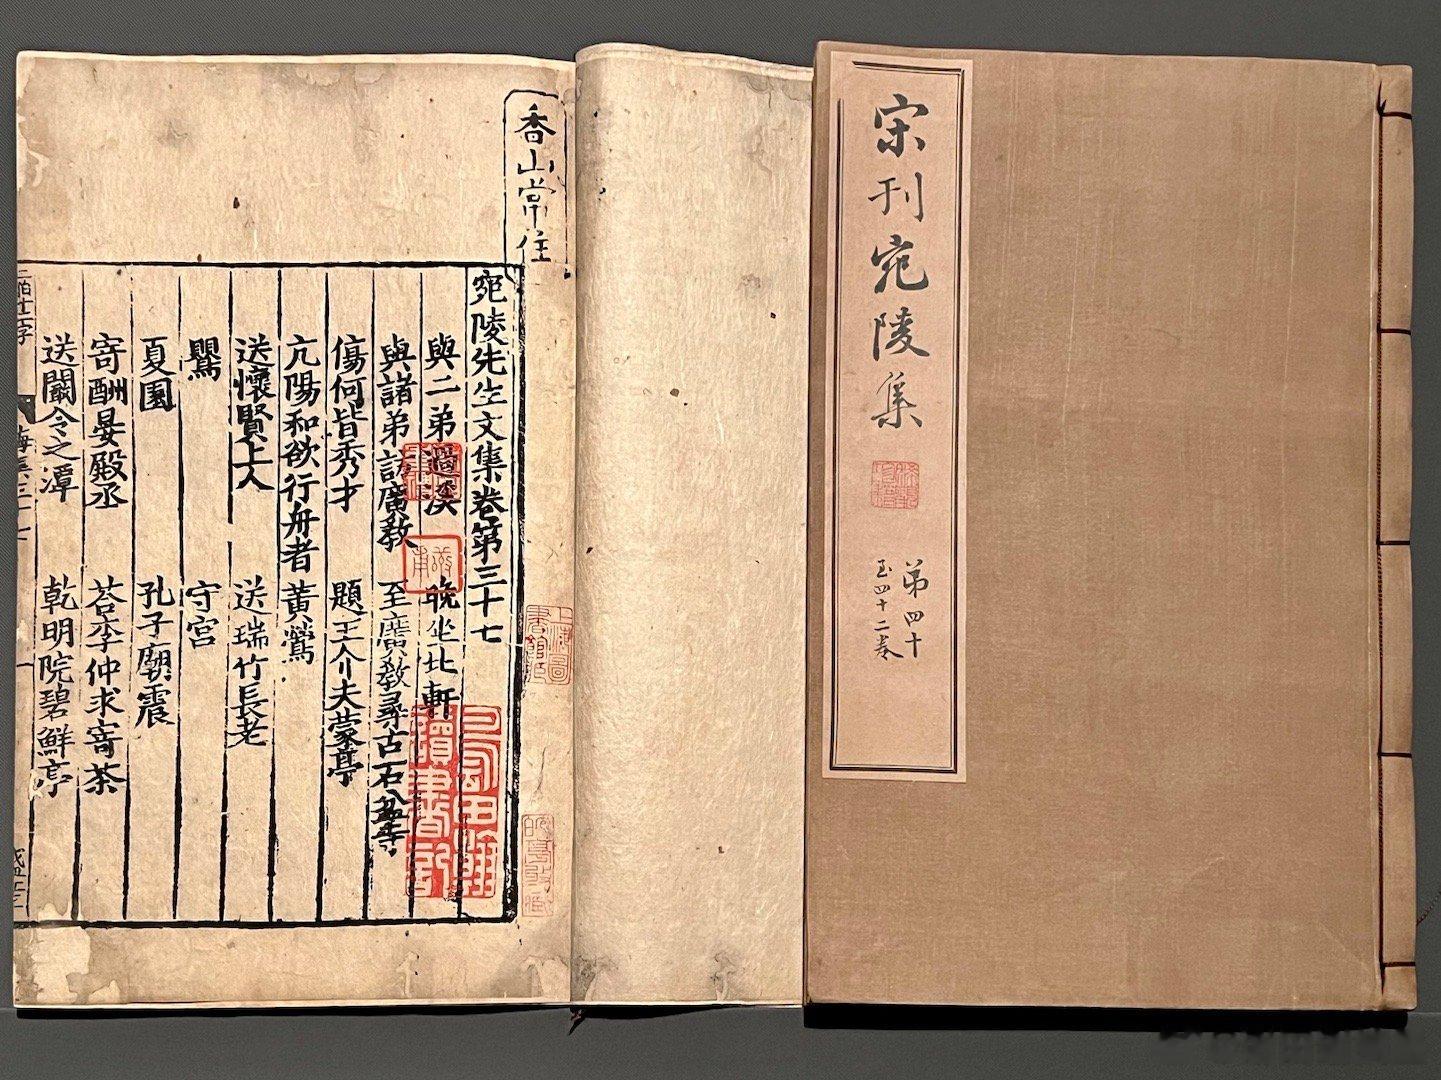 宋刊宛陵集
第四十
至四十二卷
香山常住
宛陵先生文集卷第三十七
與二弟過溪 晚坐北軒
與諸弟訪廣敎 至廣敎尋古石盆寺
傷何皆秀才 題王介夫蒙亭
亢陽和欲行舟者 黃鶯
送懷賢上人 送瑞竹長老
鸎 守宮
夏園 孔子廟震
寄酬晏殿丞 荅李仲求寄茶
送闞令之潭 乾明院碧鮮亭
上海圖
書館藏